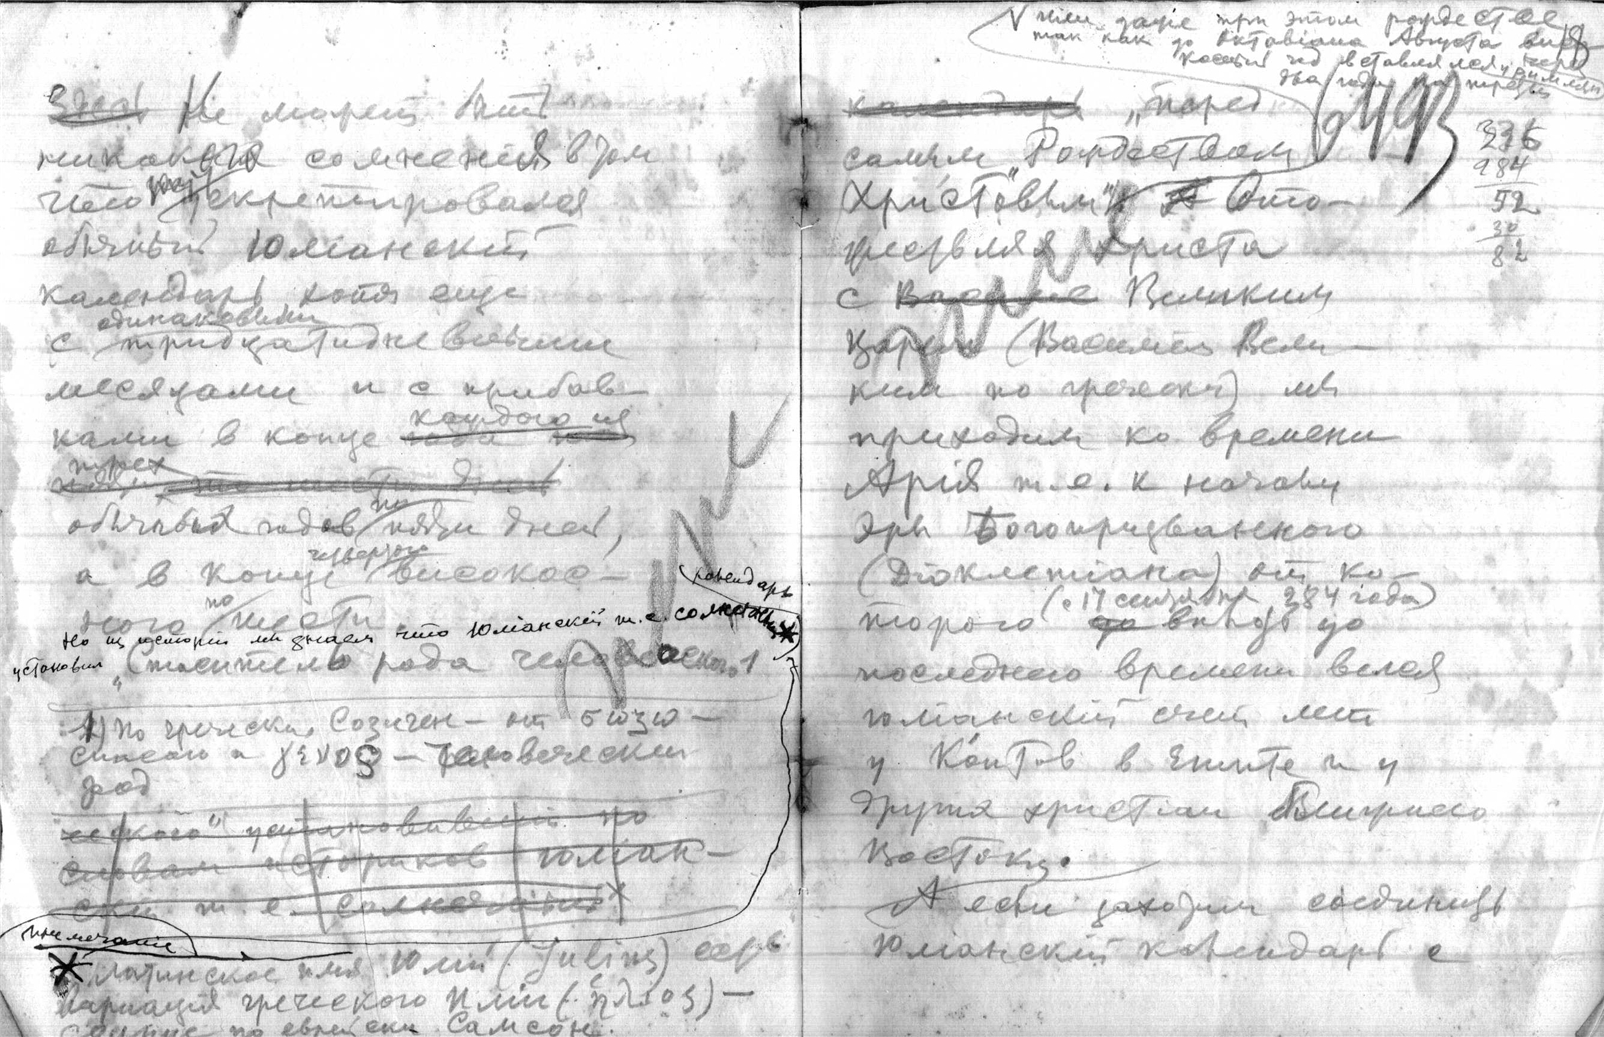 Здесь Не может быть
никакого сомнения в том
что здесь декретировался
обычный Юліанский
календарь, хотя еще
одинаковыми
с тридцатидневными
месяцами и с прибав-
каждого из
ками в конце года
трех
обычных годов по пяти дней,
четвертого
а в конце високос-
ного по шести
календарь
Но из истории мы знаем что Юліанский т.е. солнечный*
установил „Спаситель рода человеческого 1
1) По гречески Созиген – от σώζω –
спасаю и γένος – человеческий
род
ческого" установивший по
словам историков Юліан-
ский т.е. солнечный*
примечание
* Латинское имя Юлий (Julius) есть
варіація греческого Иліи (ἥλιος) –
Солнце по еврейски Самсон.
V или даже при этом рождестве
так как до Октавіана Августа висо-
косный год вставлялся у римлян через
два года на третій
18
календарь „перед
493
самым Рождеством
Христовым" Ото-
жествляя Христа
с Великим
Царем (Василием Вели-
ким по гречески) мы
приходим ко времени
Арія т.е. к началу
Эры Богопризванного
(Діоклетіана) от ко-
(с 17 сентября 284 года)
торого вплоть до
последнего времени велся
юліанский счет лет
у Коптов в Египте и у
других христіан Ближнего
Востока.
А если захотим соединить
Юліанский календарь с
336
284
52
30
82